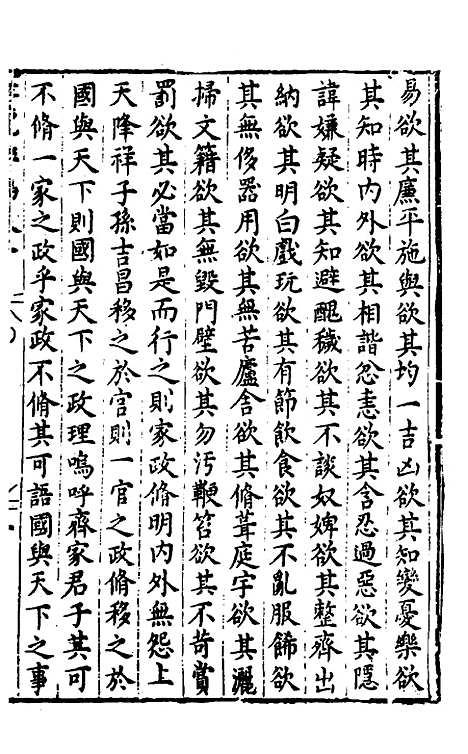 易欲其廉平施與欲其均一吉凶欲其知變憂樂欲
其知時内外欲其相諧忿恚欲其含忍過惡欲其隱
諱嫌疑欲其知避醜穢欲其不談奴婢欲其整齊出
納欲其明白戲玩欲其有節飲食欲其不亂服飾欲
其無侈器用欲其無苦廬舍欲其脩葺庭宇欲其灑
掃文籍欲其無毀門壁欲其勿汚鞭笞欲其不苛賞
罰欲其必當如是而行之則家政脩明内外無怨上
天降祥子孫吉昌移之於官則一官之政脩移之於
國與天下則國與天下之政理嗚呼齊家君子其可
不脩一家之政乎家政不脩其可語國與天下之事